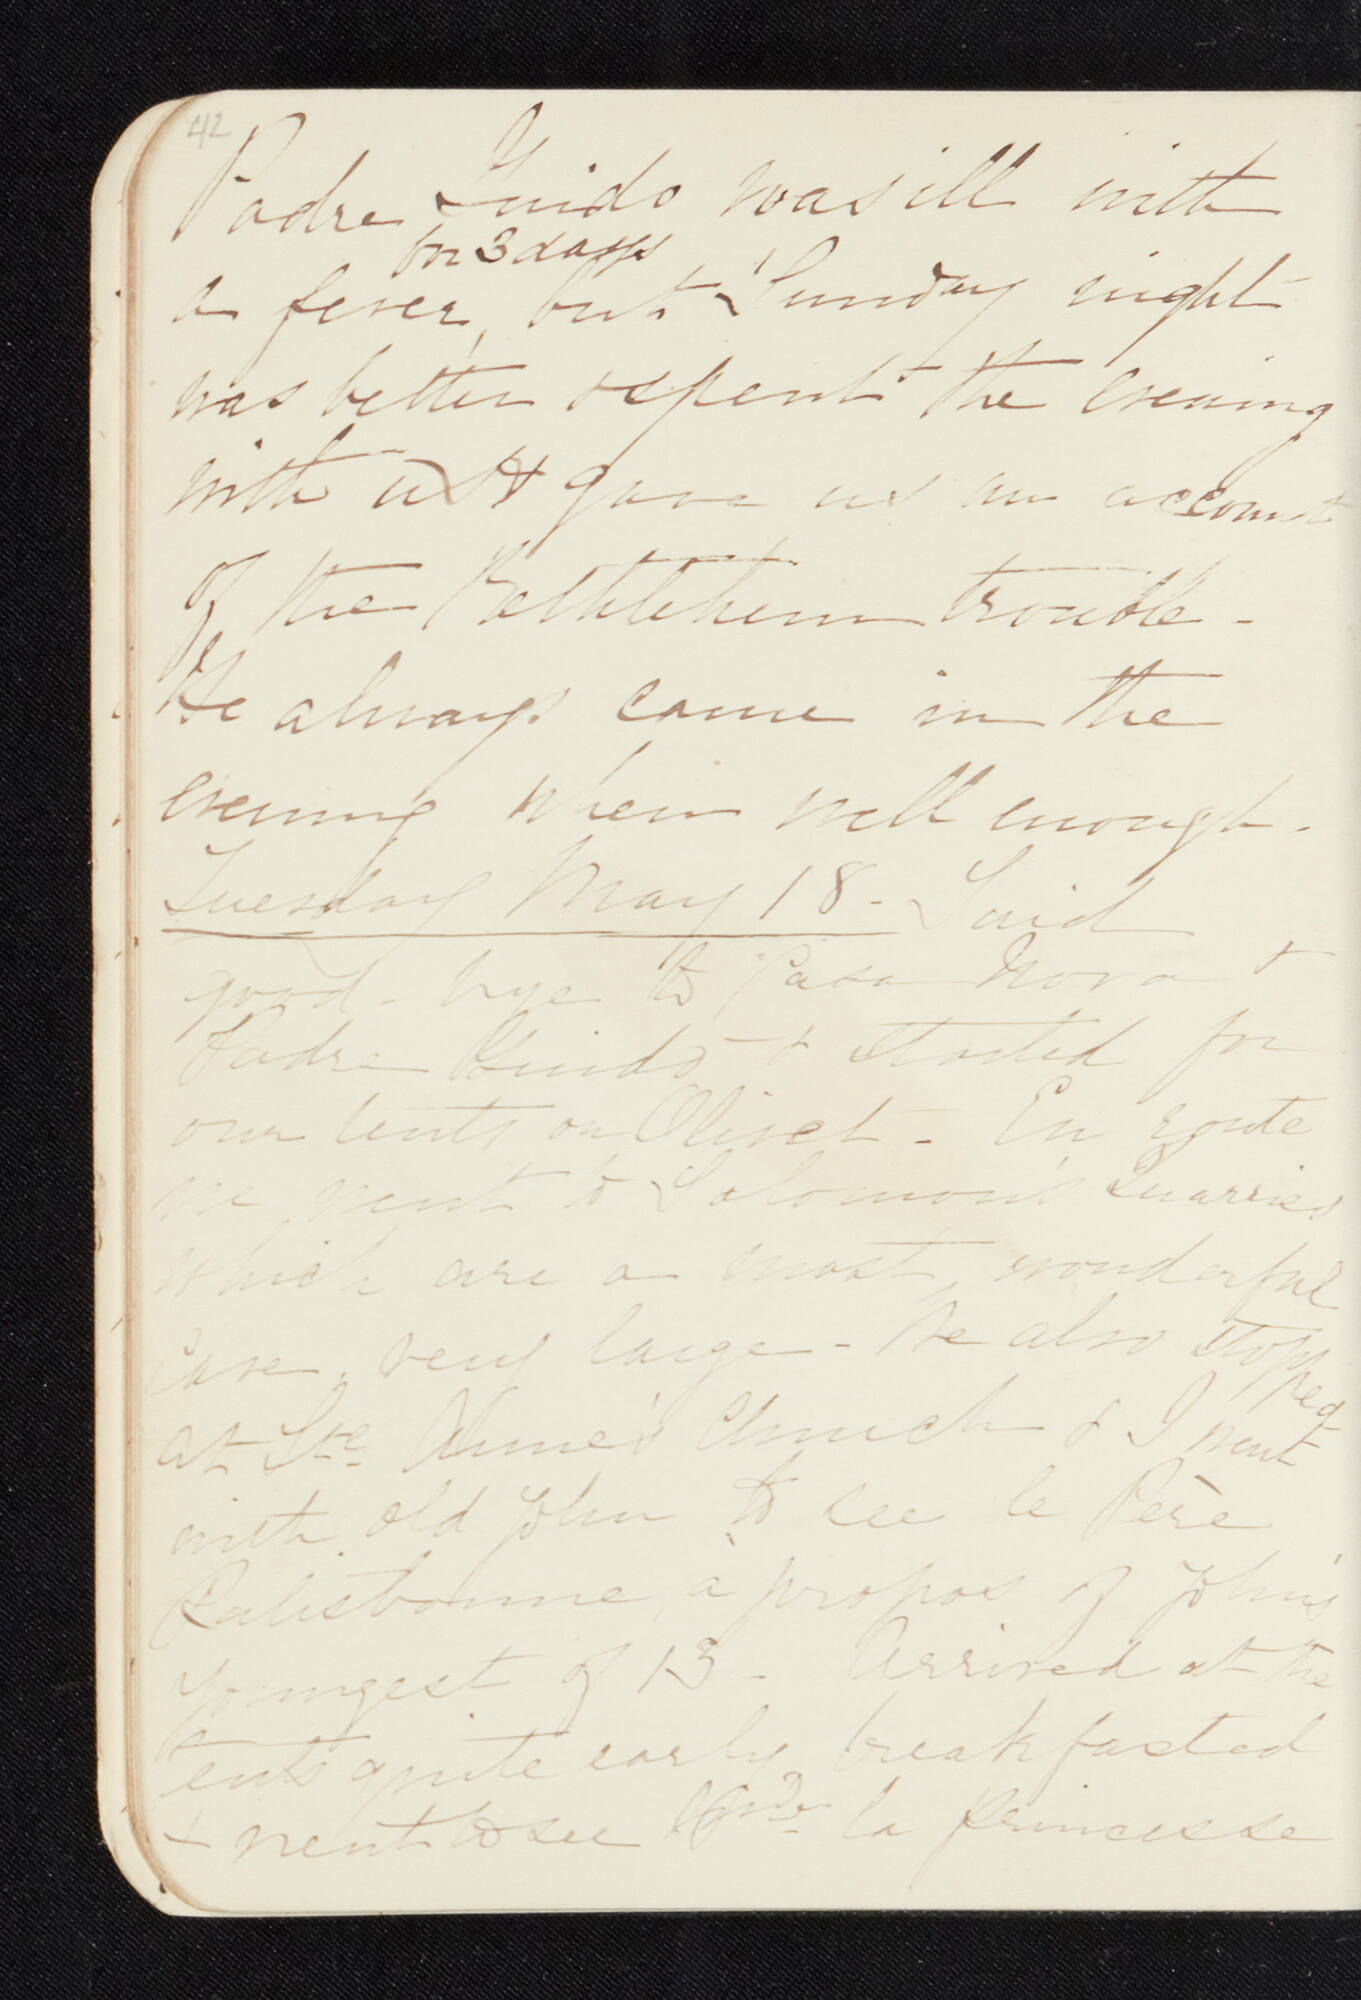 42
Padre Guido was ill with
for 3 days
a fever, but Sunday night
was better & spent the evening
with us & gave us an account
of the Bethlehem trouble -
He always came in the
evening when well enough -
Tuesday May 18 - Said
good-bye to Casa Nova &
Padre Guido & started for
our tents on Olivet - En route
we went to Solomon's Quarries
which are a most wonderful
cave, very large - We also stopped
at Ste. Anne's Church & I went
with old John to see le Père
Ratisbonne, à propos of John's
youngest of 13 - Arrived at the
tents quite early, breakfasted
& went to see la Princesse